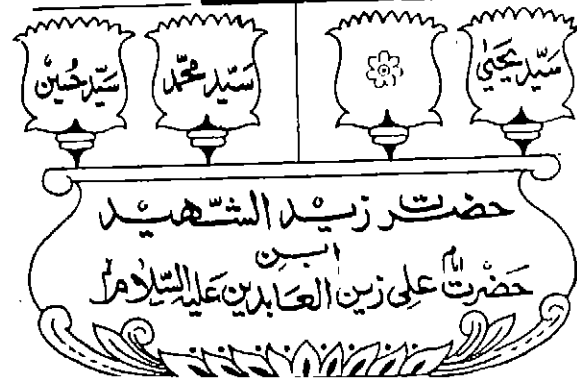 سیّد یحییٰ
سیّد محمّد
سیّد حُسین
حضرت زید الشّہید
ابن
حَضرت امام علی زین العابدین علیہ السّلام